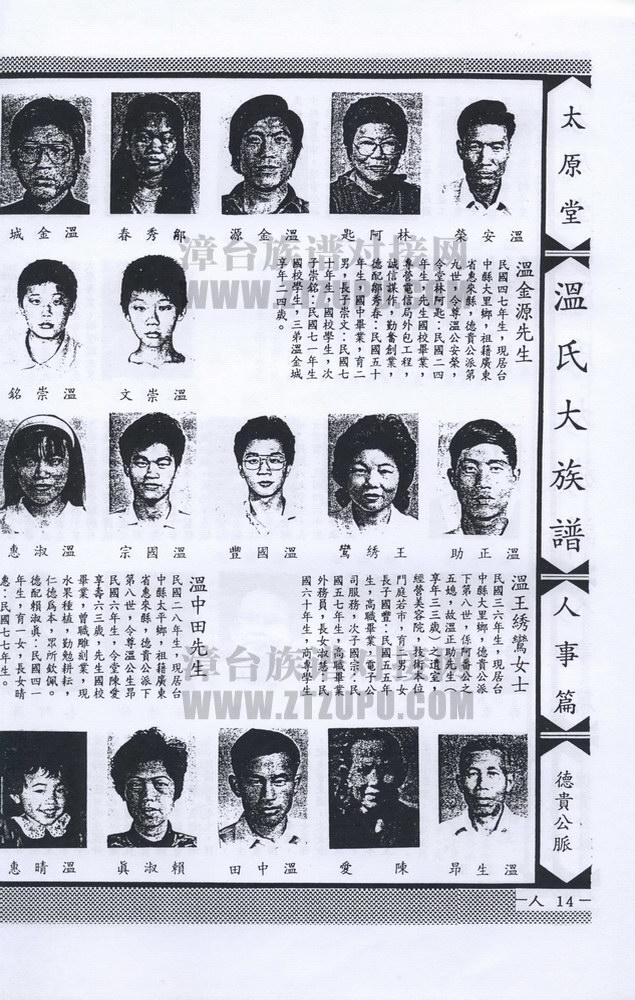 太原堂
溫氏大族譜
人事篇
德貴公脈
溫安榮
林阿匙
溫金源
鄔秀春
溫金城
溫金源先生
民國四七年生，現居台
中縣大里鄉，祖籍廣東
省惠來縣，德貴公派第
九世，令尊溫公安榮，
令堂林阿匙：民國二四
年生。先生國校畢業，
專營電信局外包工程，
誠信謀作，勤奮創業，
德配鄔秀春：民國五十
年生，國中畢業，育二
男，長子崇文：民國七
十年生，國校學生，次
子崇銘：民國七一年生
國校學生，三弟溫金城
享年二四歲。
溫崇文
溫崇銘
溫正助
王綉鶯
溫國豐
溫國宗
溫淑惠
溫王綉鶯女士
民國三六年生，現居台
中縣大里鄉，德貴公派
下第八世，係阿番公之
五媳，故溫正助先生（
享年三三歲）之遺室，
經營美容院，技術本位
門庭若市，育二男一女
長子國豐：民國五五年
生，高職畢業，電子公
司服務，次子國宗：民
國五七年生，高職畢業
外務員，長女淑惠：民
國六十年生，高商學生
溫中田先生
民國二八年生，現居台
中縣太平鄉，祖籍廣東
省惠來縣，德貴公派下
第八世，令尊溫公生昂
民國六年生，令堂陳愛
享壽六三歲，先生國校
畢業，曾職雕刻業，現
水果種植，勤勉耕耘，
仁德為本，眾所欽佩。
德配賴淑真：民國四一
年生，育一女，長女晴
惠：民國七七年生。
溫生昂
陳愛
溫中田
賴淑真
溫晴惠
—人 14—
漳台族谱对接网
WWW.ZTZUPU.COM
漳台族谱对接网
WWW.ZTZUPU.COM